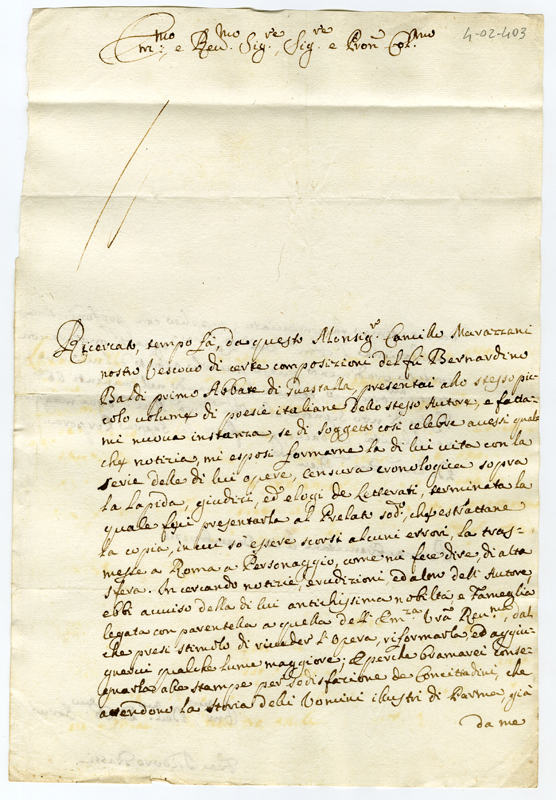 4-02-403
Em:mo e Rev:mo Sig:re, Sig:re e Pron Col:mo
Ricercato, tempo fà, da questo Monsig:r Camillo Marazzani
nostro Vescovo di certe composizioni del fù Bernardino
Baldi primo Abbate di Guastalla presentai allo stesso pic-
colo volume di poesie italiane dello stesso Autore, e fatta-
mi nuova instanza, se di soggetto così celebre avessi qual
che notizia, mi esposi formarne la di lui vita con la
serie delle di lui opere, censura cronologica sopra
la Lapida, giudizii, ed elogi de Letterati, terminata la
quale feci presentarla al Prelato sod:o, che estrattane
la copia, in cui so essere scorsi alcuni errori, la tras-
messe a Roma a Personaggio, come mi fece dire, di alta
sfera. In cercando notizie, erudizioni, ed altro dell'Autore,
ebbi avviso della di lui antichissima nobiltà e Fameglia
legata con parentella a quella dell'Em:za Vrã Rev:ma, dal
che presi stimolo di riveder l'Opera, riformarla, ed aggiu-
gnervi qualche lume maggiore; E perche bramarei conse-
gnarla alle stampe per sodisfazione de Concittadini, che
attendono la Storia delli Uomini illustri di Parma, già
da me